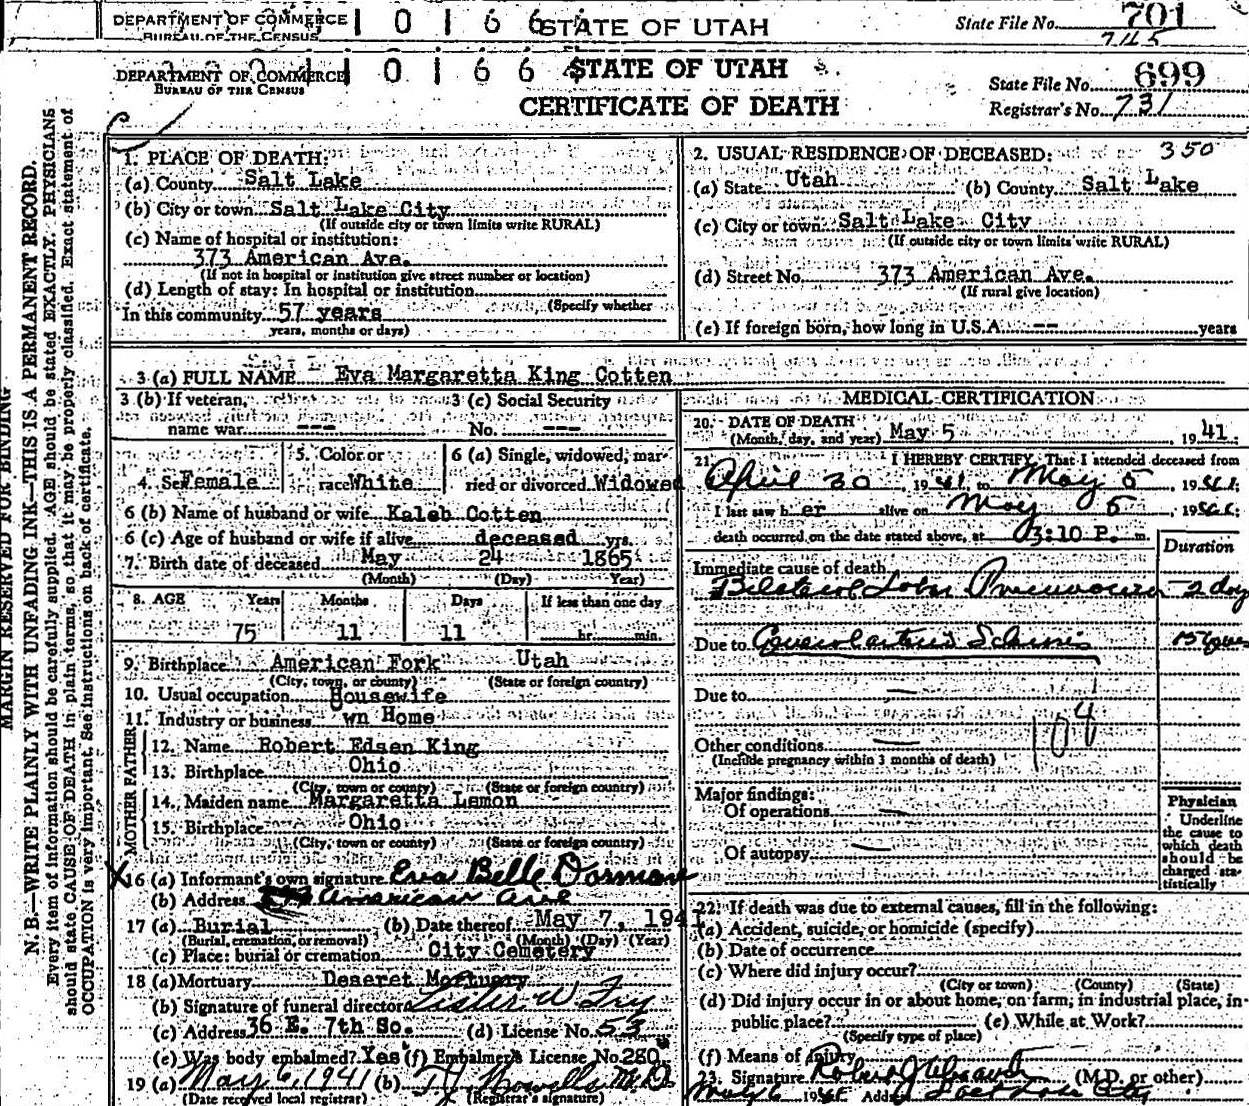 DEPARTMENT OF COMMERCE
BUREAU OF THE CENSUS
1 0 1 6 6
STATE OF UTAH
State File No. 701
745
DEPARTMENT OF COMMERCE
BUREAU OF THE CENSUS
1 0 1 6 6
STATE OF UTAH
CERTIFICATE OF DEATH
State File No. 699
Registrar's No. 731
MARGIN RESERVED FOR BINDING
N. B.—WRITE PLAINLY WITH UNFADING INK—THIS IS A PERMANENT RECORD.
Every item of information should be carefully supplied. AGE should be stated EXACTLY. PHYSICIANS
should state CAUSE OF DEATH in plain terms, so that it may be properly classified. Exact statement of
OCCUPATION is very important. See instructions on back of certificate.
1. PLACE OF DEATH:
(a) County Salt Lake
(b) City or town Salt Lake City
(If outside city or town limits write RURAL)
(c) Name of hospital or institution:
373 American Ave.
(If not in hospital or institution give street number or location)
(d) Length of stay: In hospital or institution
(Specify whether
In this community 57 years
years, months or days)
2. USUAL RESIDENCE OF DECEASED: 350
(a) State Utah (b) County Salt Lake
(c) City or town Salt Lake City
(If outside city or town limits write RURAL)
(d) Street No. 373 American Ave.
(If rural give location)
(e) If foreign born, how long in U.S.A. -- years
3 (a) FULL NAME Eva Margaretta King Cotten
3 (b) If veteran, 3 (c) Social Security
name war --- No. ---
4. Sex Female 5. Color or race White 6 (a) Single, widowed, married or divorced Widowed
6 (b) Name of husband or wife Kaleb Cotten
6 (c) Age of husband or wife if alive deceased yrs.
7. Birth date of deceased May 24 1865
(Month) (Day) Year)
8. AGE Years Months Days If less than one day
75 11 11 hr. min.
9. Birthplace American Fork Utah
(City, town, or county) (State or foreign country)
10. Usual occupation Housewife
11. Industry or business wn Home
FATHER
12. Name Robert Edsen King
13. Birthplace Ohio
(City, town or county) (State or foreign country)
MOTHER
14. Maiden name Margaretta Lemon
15. Birthplace Ohio
(City, town or county) (State or foreign country)
X 16 (a) Informant's own signature Eva Belle Dorman
(b) Address 373 American Ave
17 (a) Burial (b) Date thereof May 7, 1941
(Burial, cremation, or removal) (Month) (Day) (Year)
(c) Place: burial or cremation City Cemetery
18 (a) Mortuary Deseret Mortuary
(b) Signature of funeral director Lester W Fry
(c) Address 36 E. 7th So. (d) License No. 53
(e) Was body embalmed? Yes (f) Embalmer's License No. 280
19 (a) May 6, 1941 (b) T. J. Howells, M.D.
(Date received local registrar) (Registrar's signature)
MEDICAL CERTIFICATION
20. DATE OF DEATH
(Month, day, and year) May 5, 1941;
21. I HEREBY CERTIFY, That I attended deceased from
April 30, 1941, to May 5, 1941;
I last saw her alive on May 5, 1941;
death occurred on the date stated above, at 03:10 P. m.
Duration
Immediate cause of death
Bilateral Lobar Pneumonia 2 day
Due to Sclerosis 15 years
Due to —
Other conditions —
(Include pregnancy within 3 months of death)
104
Major findings:
Of operations —
Of autopsy —
Physician
Underline
the cause to
which death
should be
charged sta-
tistically
22. If death was due to external causes, fill in the following:
(a) Accident, suicide, or homicide (specify)
(b) Date of occurrence
(c) Where did injury occur?
(City or town) (County) (State)
(d) Did injury occur in or about home, on farm, in industrial place, in-
public place? (e) While at Work?
(Specify type of place)
(f) Means of Injury
23. Signature Robert J (M.D. or other)
May 6 1941 Address Salt Lake City